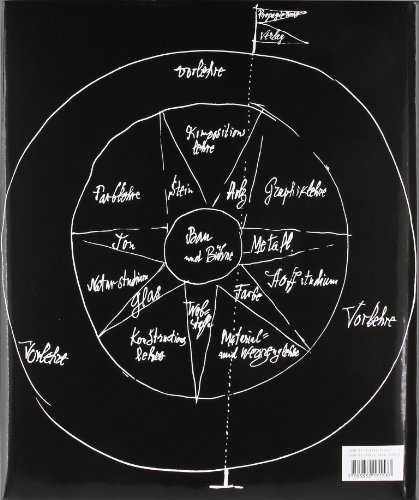 Propagierung
Verlag
Vorlehre
Kompositions
lehre
Farblehre
Stein
Holz
Ton
Bau
und Bühne
Metall
Naturstudium
Glas
Farbe
Stoffstudium
Konstruktions
lehre
Web
stoffe
Material=
und Werkzeuglehre
Vorlehre
Vorlehre